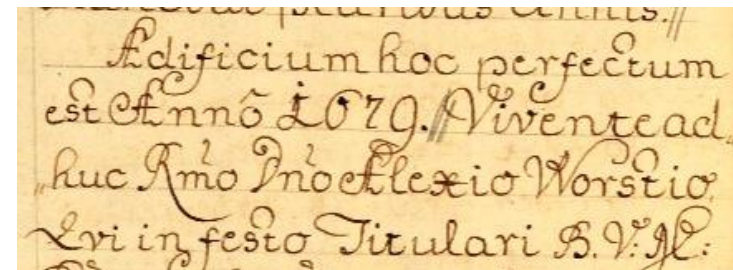 pluribus annis.//
Ædificium hoc perfectum
est Annô 1679. // Vivente ad„
„huc Rm̃o Dño Alexio Worstio,
Qvi in festo Titulari B. V. M: